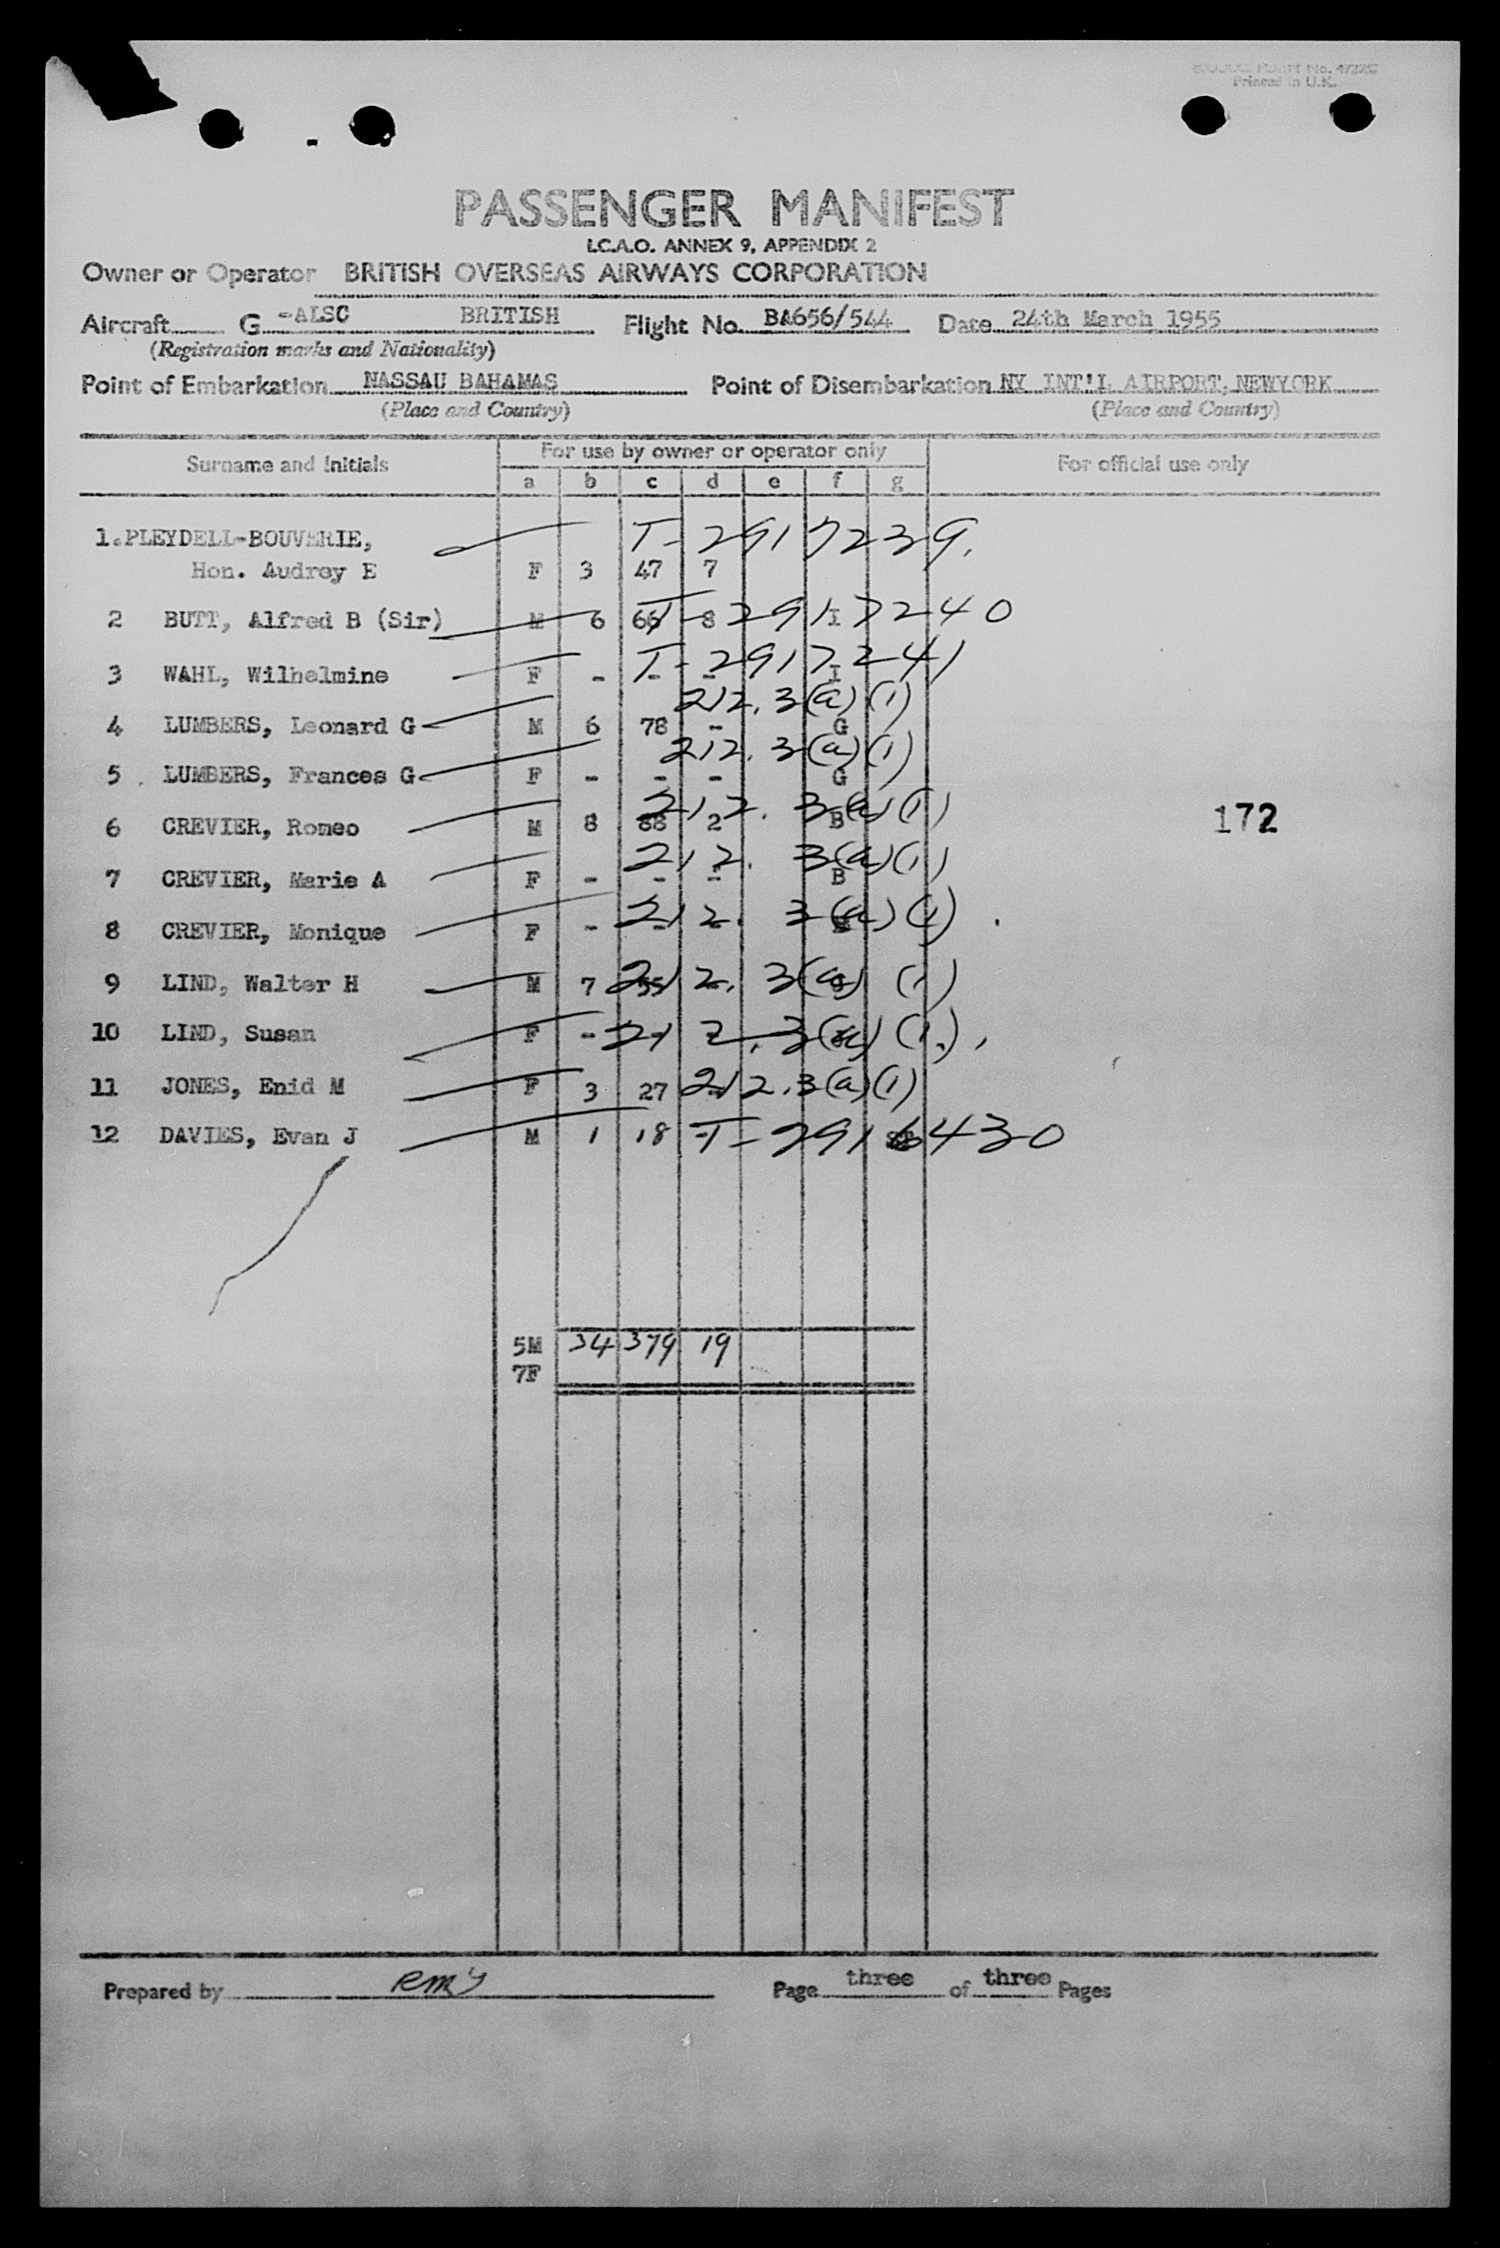 Printed in U.K.
PASSENGER MANIFEST
I.C.A.O. ANNEX 9, APPENDIX 2
Owner or Operator BRITISH OVERSEAS AIRWAYS CORPORATION
Aircraft G -ALSC BRITISH Flight No. BA656/544 Date 24th March 1955
(Registration marks and Nationality)
Point of Embarkation NASSAU BAHAMAS Point of Disembarkation NY INT'L AIRPORT, NEWYORK
(Place and Country) (Place and Country)
Surname and Initials For use by owner or operator only For official use only
a b c d e f g
1.PLEYDELL-BOUVERIE, T-2917239.
Hon. Audrey E F 3 47 7
2 BUTT, Alfred B (Sir) M 6 66 8 I T-2917240
3 WAHL, Wilhelmine F - - - I T-2917241
4 LUMBERS, Leonard G M 6 78 - G 212.3(a)(1)
5 LUMBERS, Frances G F - - - G 212.3(a)(1)
6 CREVIER, Romeo M 8 88 2 B 212.3(a)(1)
7 CREVIER, Marie A F - - - B 212.3(a)(1)
8 CREVIER, Monique F - - - 212.3(a)(1)
9 LIND, Walter H M 7 55 - 212.3(a)(1)
10 LIND, Susan F - - - 212.3(a)(1)
11 JONES, Enid M F 3 27 - 212.3(a)(1)
12 DAVIES, Evan J M 1 18 - T-2916430
172
5M 34 379 19
7F
Prepared by Page three of three Pages